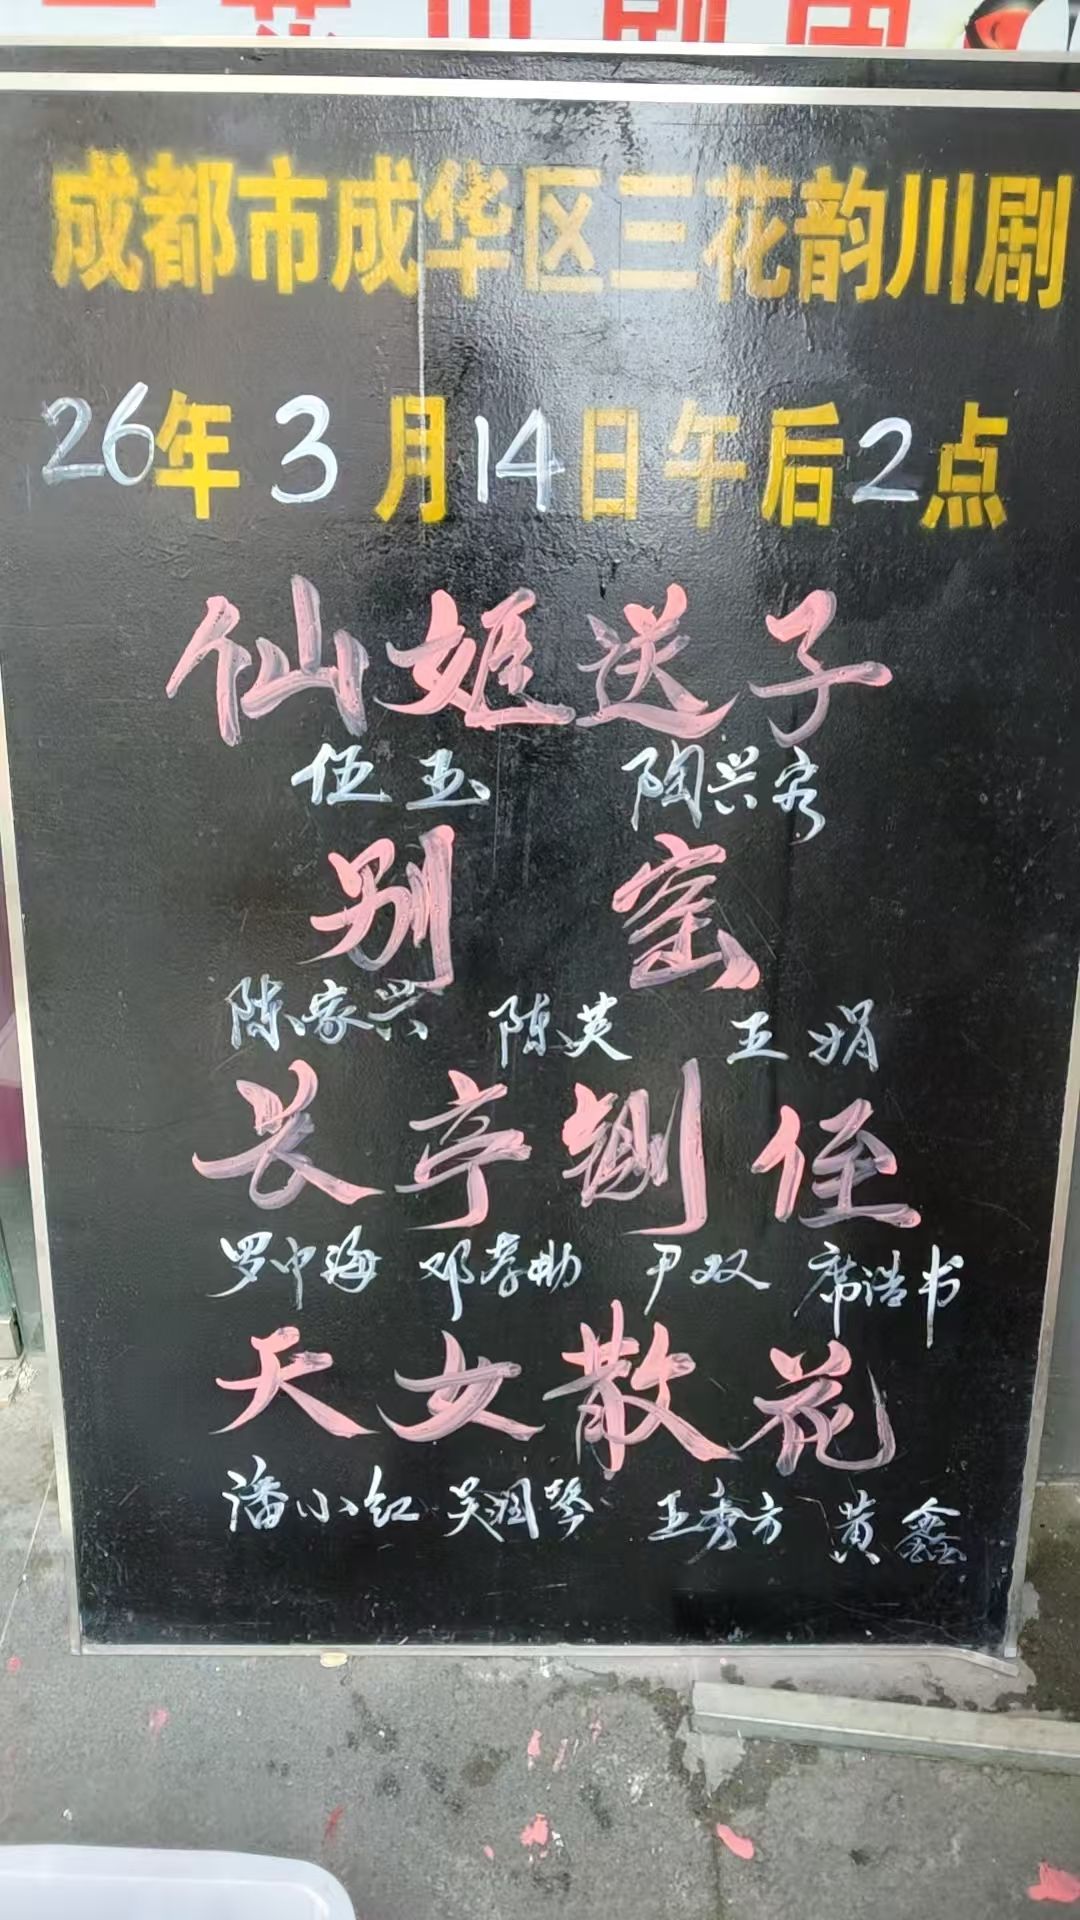 成都市成华区三花韵川剧
26年3月14日午后2点
仙姬送子
伍玉 陶兴容
别窑
陈家兴 陈英 王娟
长亭铡侄
罗中海 邓孝勤 尹双 席浩书
天女散花
潘小红 吴润琴 王秀方 黄鑫